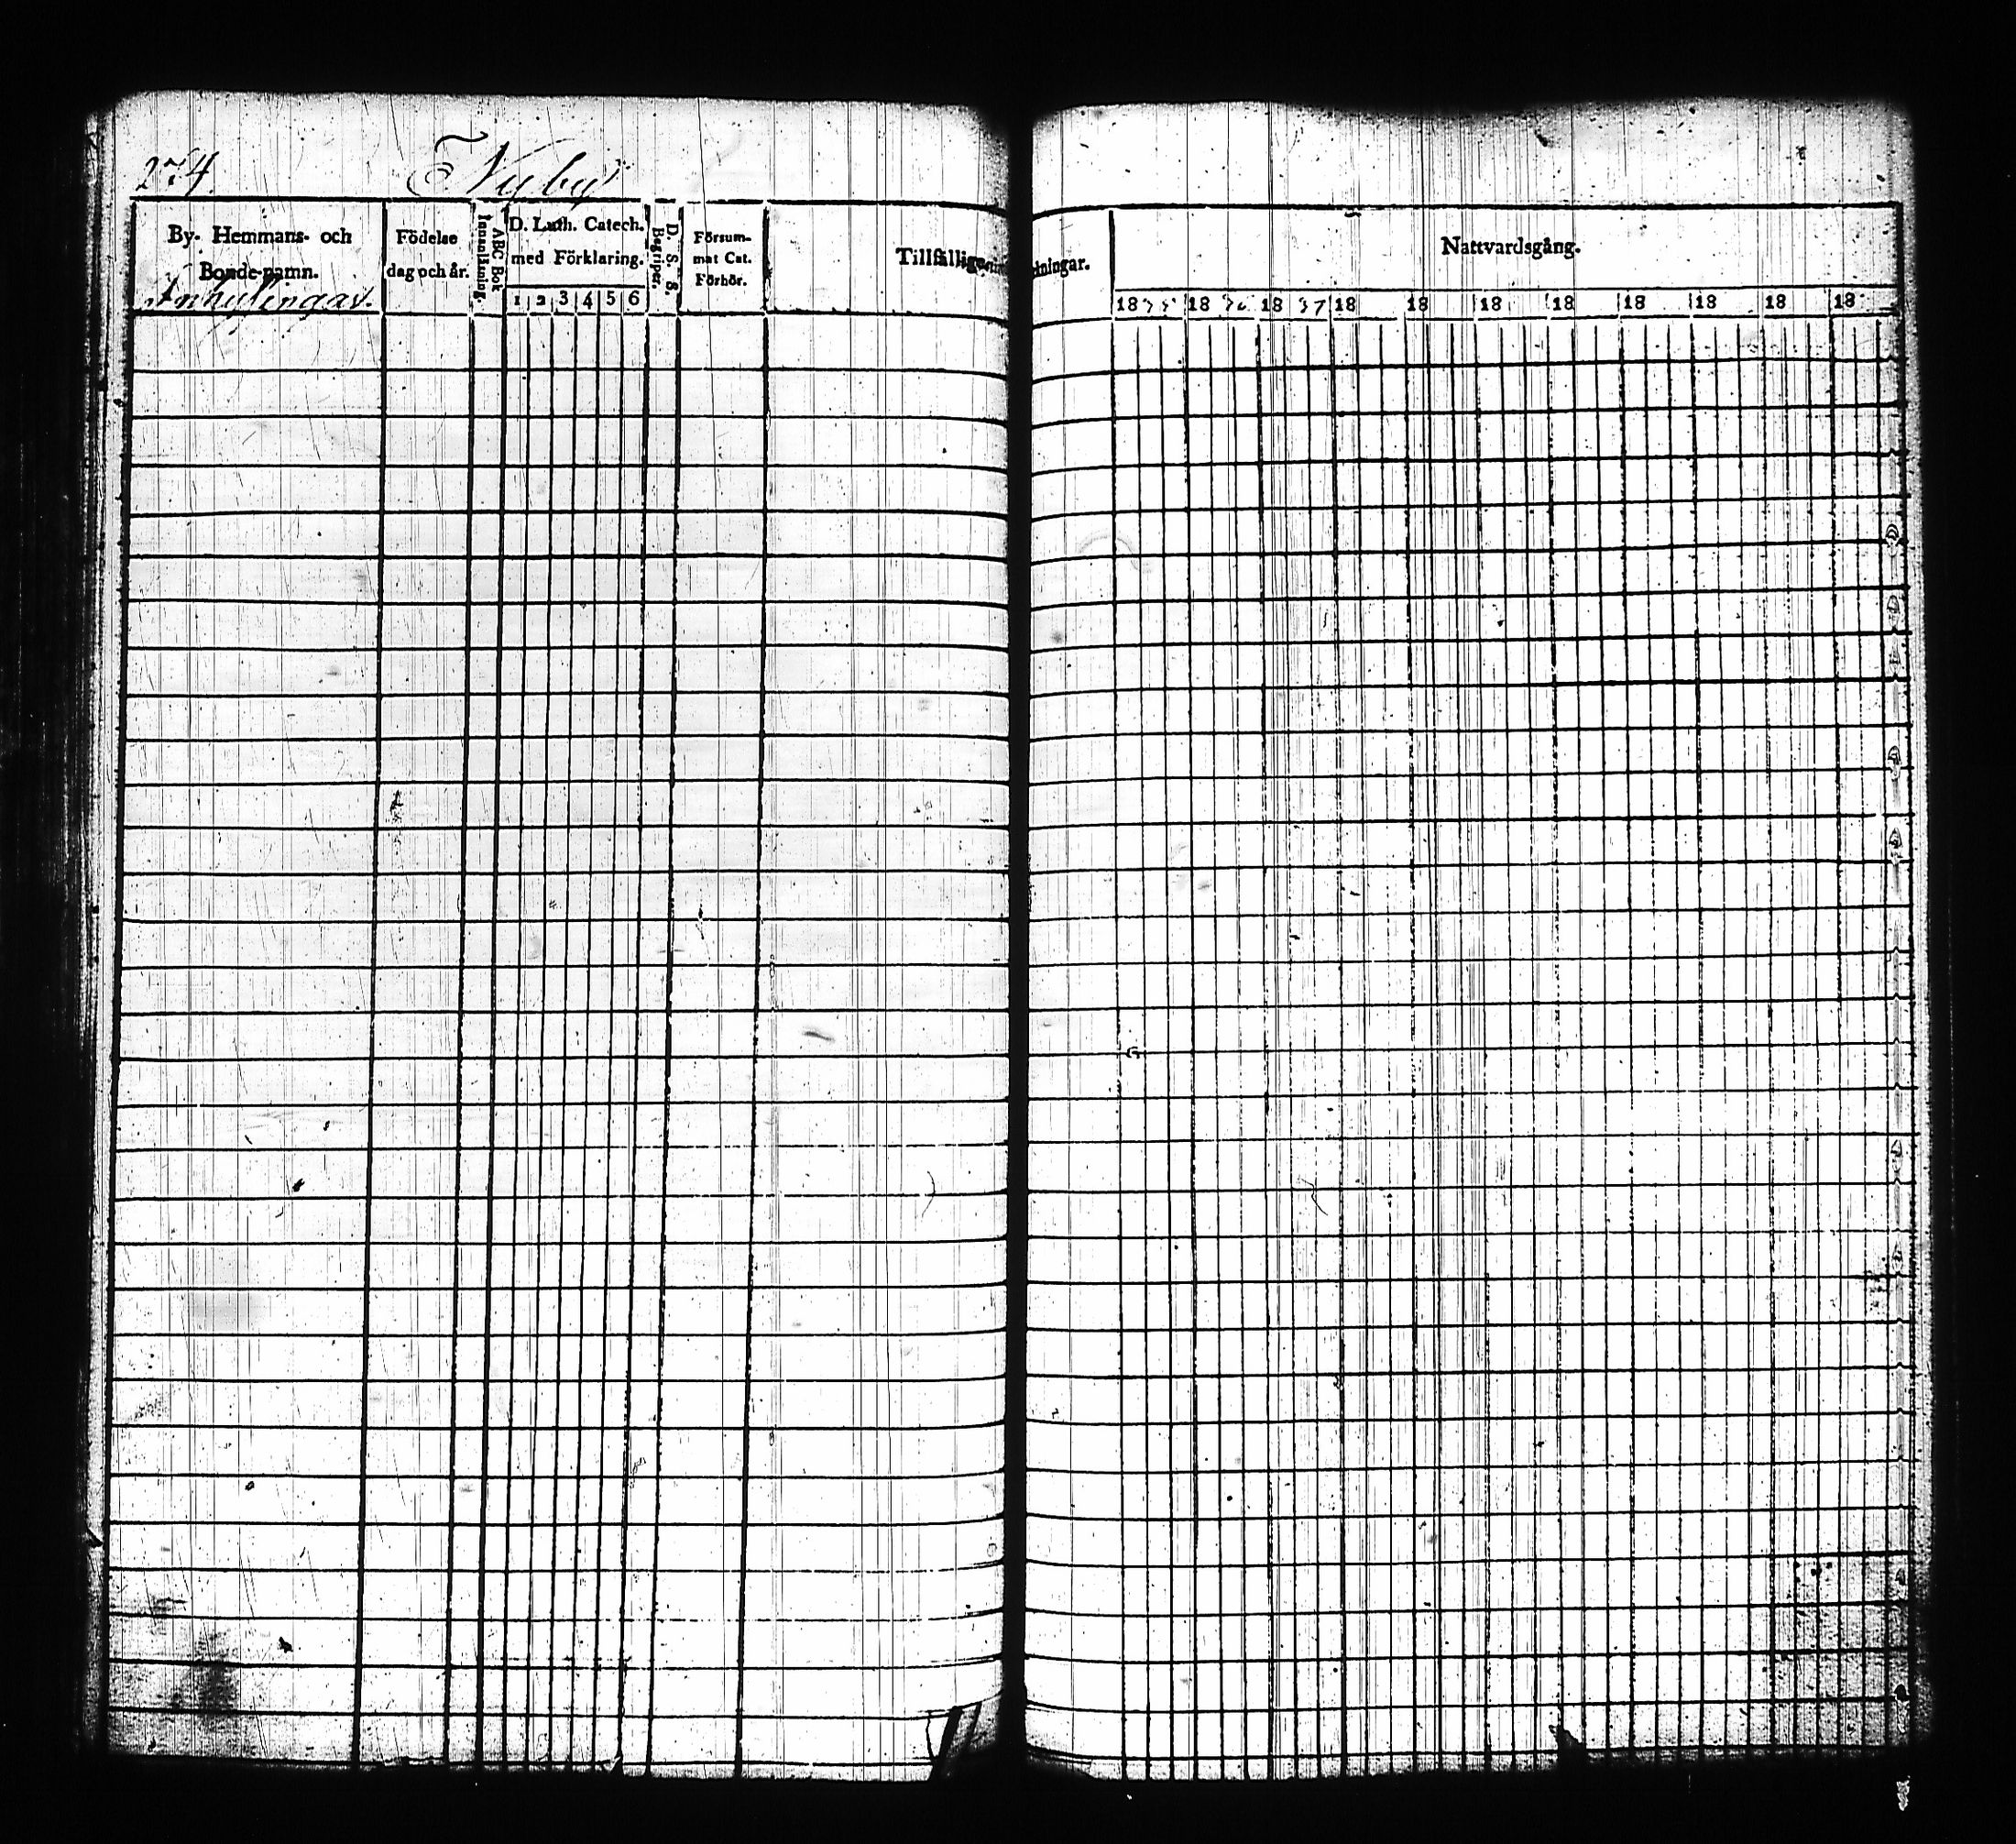 274. Nyby
By- Hemmans- och Bonde-namn.
Inhysingar.
Födelse dag och år.
ABC Bok Innanläsning.
D. Luth. Catech. med Förklaring.
1 2 3 4 5 6
D. S. S. Begriper.
Försum- mat Cat. Förhör.
Nattvardsgång.
1835 1836 1837 18 18 18 18 18 18 18 18